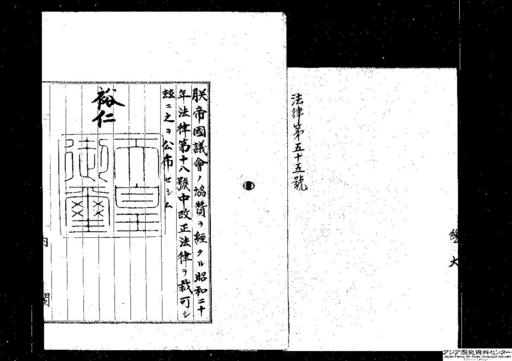 法律第五十五號
朕帝國議會ノ協贊ヲ經タル昭和二十
年法律第十八號中改正法律ヲ裁可シ
玆ニ之ヲ公布セシム
裕仁
天皇
御璽
内閣
アジア歴史資料センター